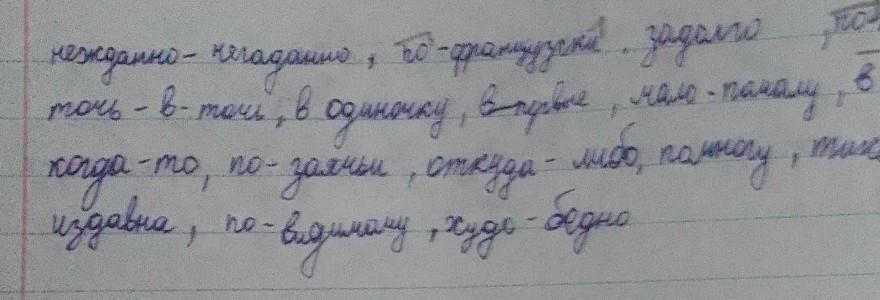 нежданно-негаданно, по-французски, задолго, по-
точь-в-точь, в одиночку, в-первые, мало-помалу, в
когда-то, по-заячьи, откуда-либо, помногу,
издавна, по-видимому, худо-бедно